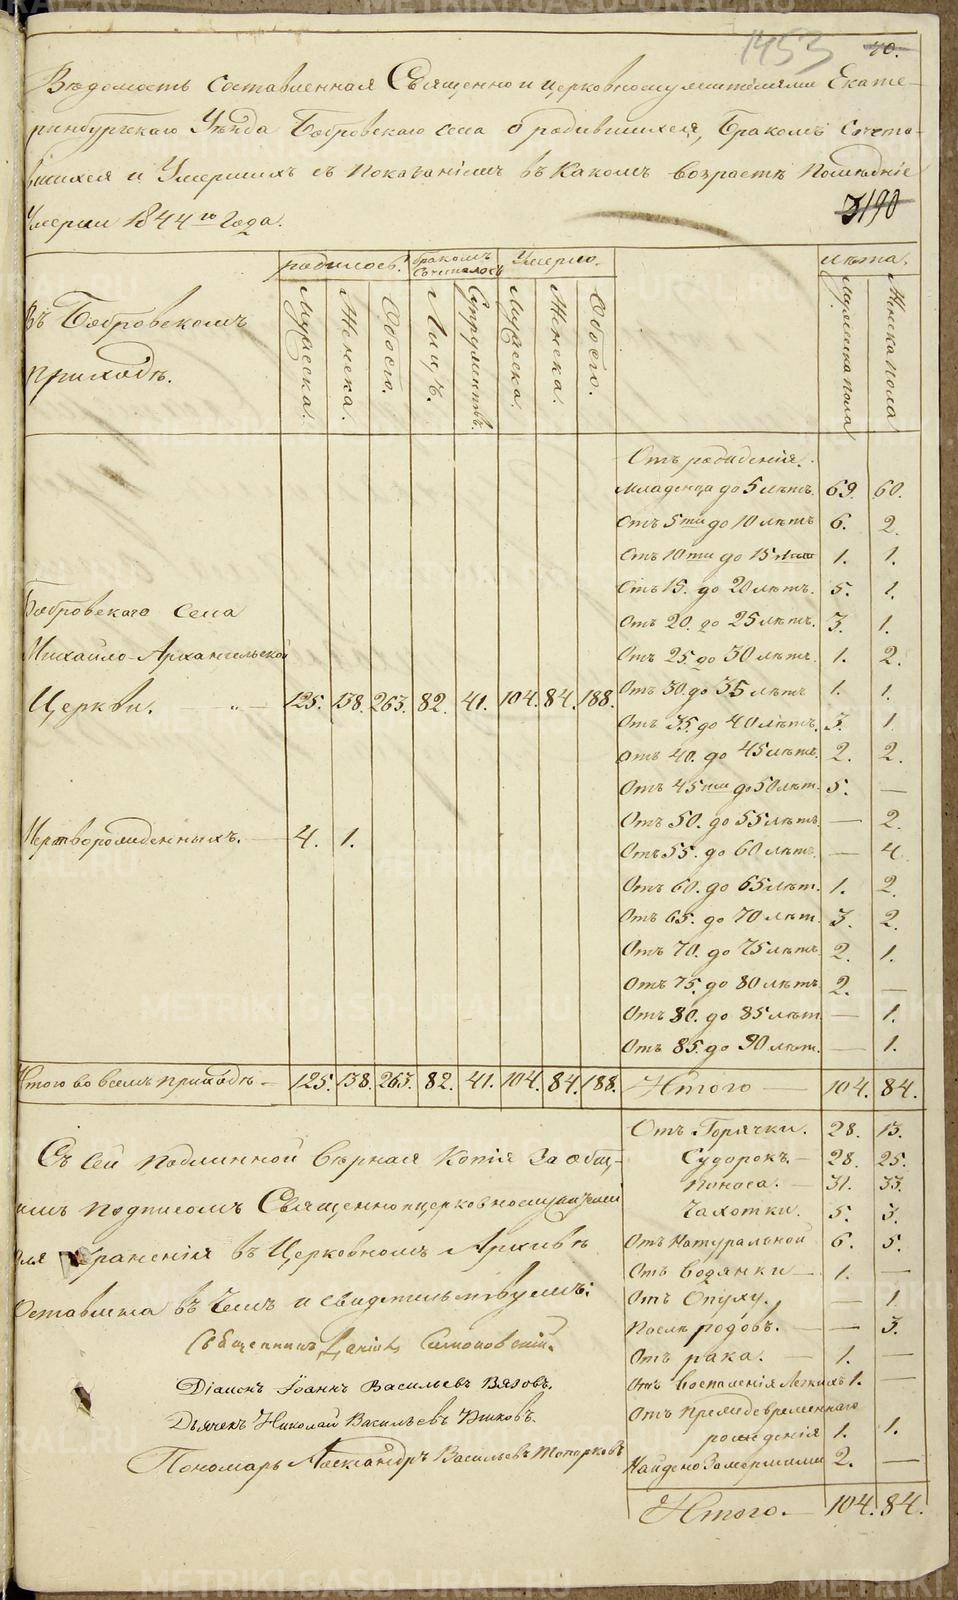 1453
40.
Ведомость составленная Священно и церковнослужителями Екате-
ринбургскаго Уѣзда Бобровскаго села о родившихся, Бракомъ Сочета-
вшихся и Умершихъ съ показаніемъ въ какомъ возрастѣ послѣдніе
Умерли 1844го Года.
3190
родилось.
Бракомъ сочеталось
Умерло.
лѣта.
Въ Бобровскомъ
приходѣ.
Мужеска.
Женска.
Обоего.
Лицъ.
Супружествъ.
Мужеска.
Женска.
Обоего.
Мужеска пола
Женска пола
Отъ рожденія.
Младенца до 5 лѣтъ. 69. 60.
Отъ 5ти до 10 лѣтъ 6. 2.
Отъ 10ти до 15 лѣтъ 1. 1.
Отъ 15. до 20 лѣтъ. 5. 1.
Бобровскаго Села
Отъ 20. до 25 лѣтъ. 3. 1.
Михайло-Архангельской
Отъ 25 до 30 лѣтъ. 1. 2.
Церкви. 125. 138. 263. 82. 41. 104. 84. 188.
Отъ 30. до 35 лѣтъ 1. 1.
Отъ 35. до 40 лѣтъ. 3. 1
Отъ 40. до 45 лѣтъ. 2. 2.
Отъ 45ти до 50 лѣт. 5. —
Отъ 50. до 55 лѣтъ. — 2.
Мертворожденныхъ. — 4. 1.
Отъ 55. до 60 лѣтъ. — 4.
Отъ 60. до 65 лѣт. 1. 2.
Отъ 65. до 70 лѣт. 3. 2.
Отъ 70. до 75 лѣтъ. 2. 1.
Отъ 75. до 80 лѣтъ. 2. —
Отъ 80. до 85 лѣт. — 1.
Отъ 85. до 90 лѣт. — 1.
Итого во всемъ приходѣ — 125. 138. 263. 82. 41. 104. 84. 188. Итого — 104. 84.
Отъ Горячки. 28. 13.
Судорокъ. — 28. 25.
Поноса. — 31. 33.
Чахотки. 5. 3.
Отъ Натуральной 6. 5.
Отъ водянки — 1. —
Отъ Опуху. — 1.
Послѣ родовъ. — — 3.
Отъ рака. — 1. —
Отъ воспаленія Легкихъ 1. —
Отъ преждевременнаго
рожденія 1. 1.
Найдено Замершими 2. —
Итого. — 104. 84.
Съ сей подлинной вѣрная Копія За общ-
имъ подписомъ Священноицерковнослужителей
для хранения въ Церковномъ Архивѣ
Оставлена въ чемъ и свидетельствуемъ:
Священникъ Данiилъ Симоновскiй.
Діаконъ Іоаннъ Васильевъ Вязовъ.
Дьячекъ Николай Васильевъ
Пономарь Александръ Васильевъ Топорковъ
METRIKI.GASO-URAL.RU